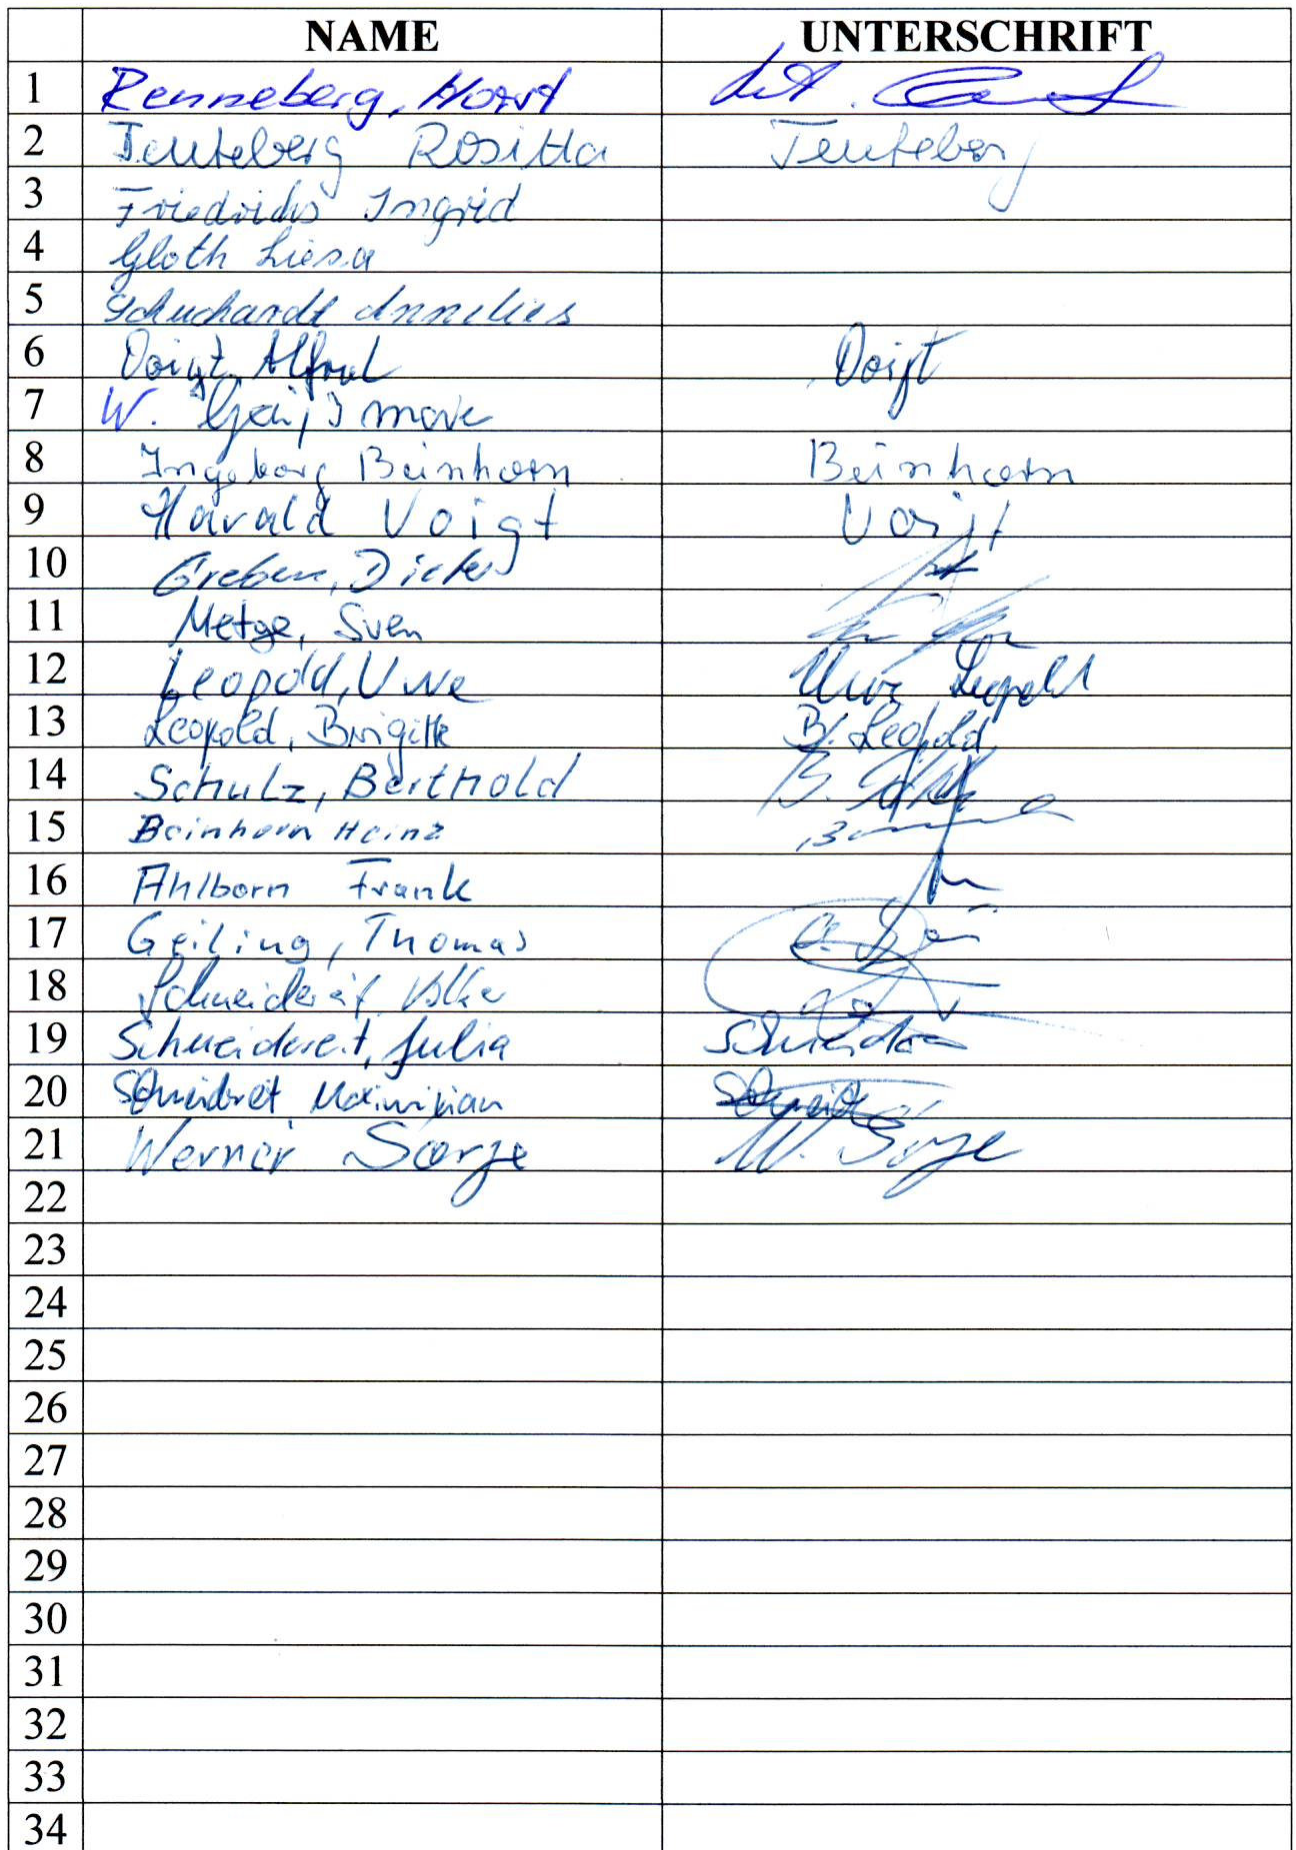 NAME UNTERSCHRIFT
1 Renneberg, Horst
2 Teuteberg Rositta Teuteberg
3 Friedrichs Ingrid
4 Gloth Liesa
5 Schuchardt Annelies
6 Voigt, Alfred Voigt
7 W.
8 Ingeborg Beinhorn Beinhorn
9 Harald Voigt Voigt
10 Dieter
11 Metge, Sven
12 Leopold, Uwe Uwe Leopold
13 Leopold, Brigitte B. Leopold
14 Schulz, Berthold B.
15 Beinhorn Heinz
16 Ahlborn Frank
17 Geiling, Thomas
18 Schneidereit Volker
19 Schneidereit, Julia
20 Schneidereit, Maximilian
21 Werner Sorge W. Sorge
22
23
24
25
26
27
28
29
30
31
32
33
34